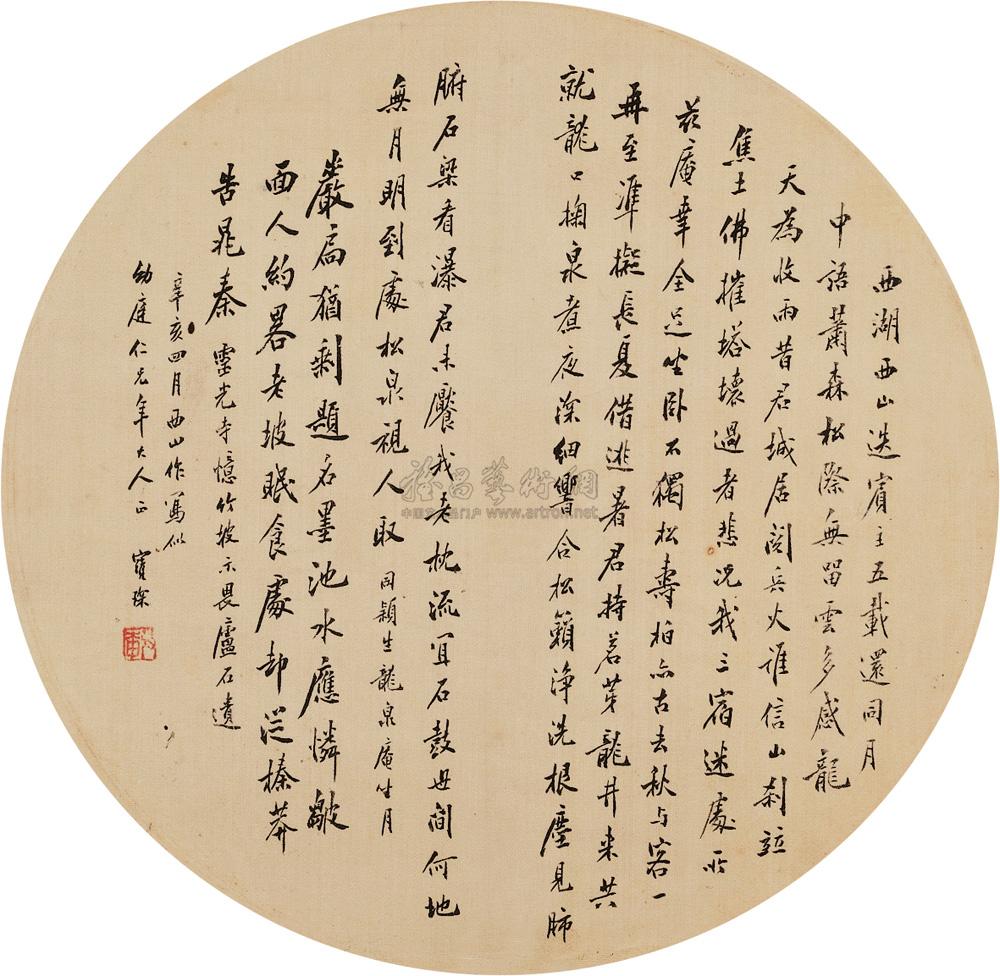 西湖西山迭賓主五載還同月
中語蕭森松際無留雲多感龍
天為收雨昔君城居閱兵火誰信山刹竝
焦土佛摧塔壞過者悲况我三宿迷處所
茲庵幸全足坐臥不獨松壽柏亦古去秋与客一
再至準擬長夏借逃暑君持茗芽龍井来共
就龍口掬泉煮夜深細響合松籟淨洗根塵見肺
腑石梁看瀑君未饜我老枕流宜石鼓世間何地
無月明到處松泉視人取 同穎生龍泉庵坐月
巖扃猶剩題名墨池水應憐皺
面人約畧老坡眠食處却從榛莽
告晁秦 靈光寺憶竹坡示畏廬石遺
辛亥四月西山作寫似
幼庭仁兄年大人正 寶琛